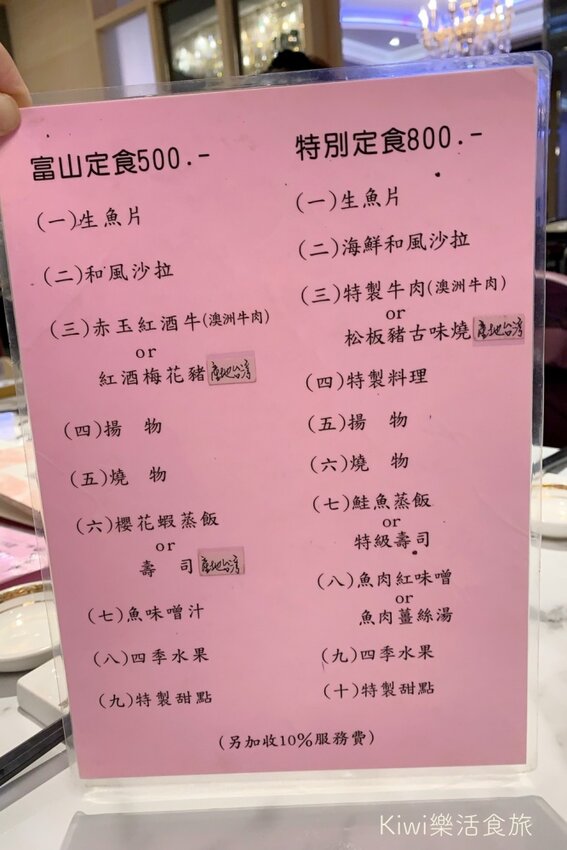 富山定食500.-
(一)生魚片
(二)和風沙拉
(三)赤玉紅酒牛(澳洲牛肉)
or
紅酒梅花豬 產地台灣
(四)揚 物
(五)燒 物
(六)櫻花蝦蒸飯
or
壽 司 產地台灣
(七)魚味噌汁
(八)四季水果
(九)特製甜點
特別定食800.-
(一)生魚片
(二)海鮮和風沙拉
(三)特製牛肉(澳洲牛肉)
or
松板豬古味燒 產地台灣
(四)特製料理
(五)揚 物
(六)燒 物
(七)鮭魚蒸飯
or
特級壽司
(八)魚肉紅味噌
or
魚肉薑絲湯
(九)四季水果
(十)特製甜點
(另加收10%服務費)
Kiwi樂活食旅